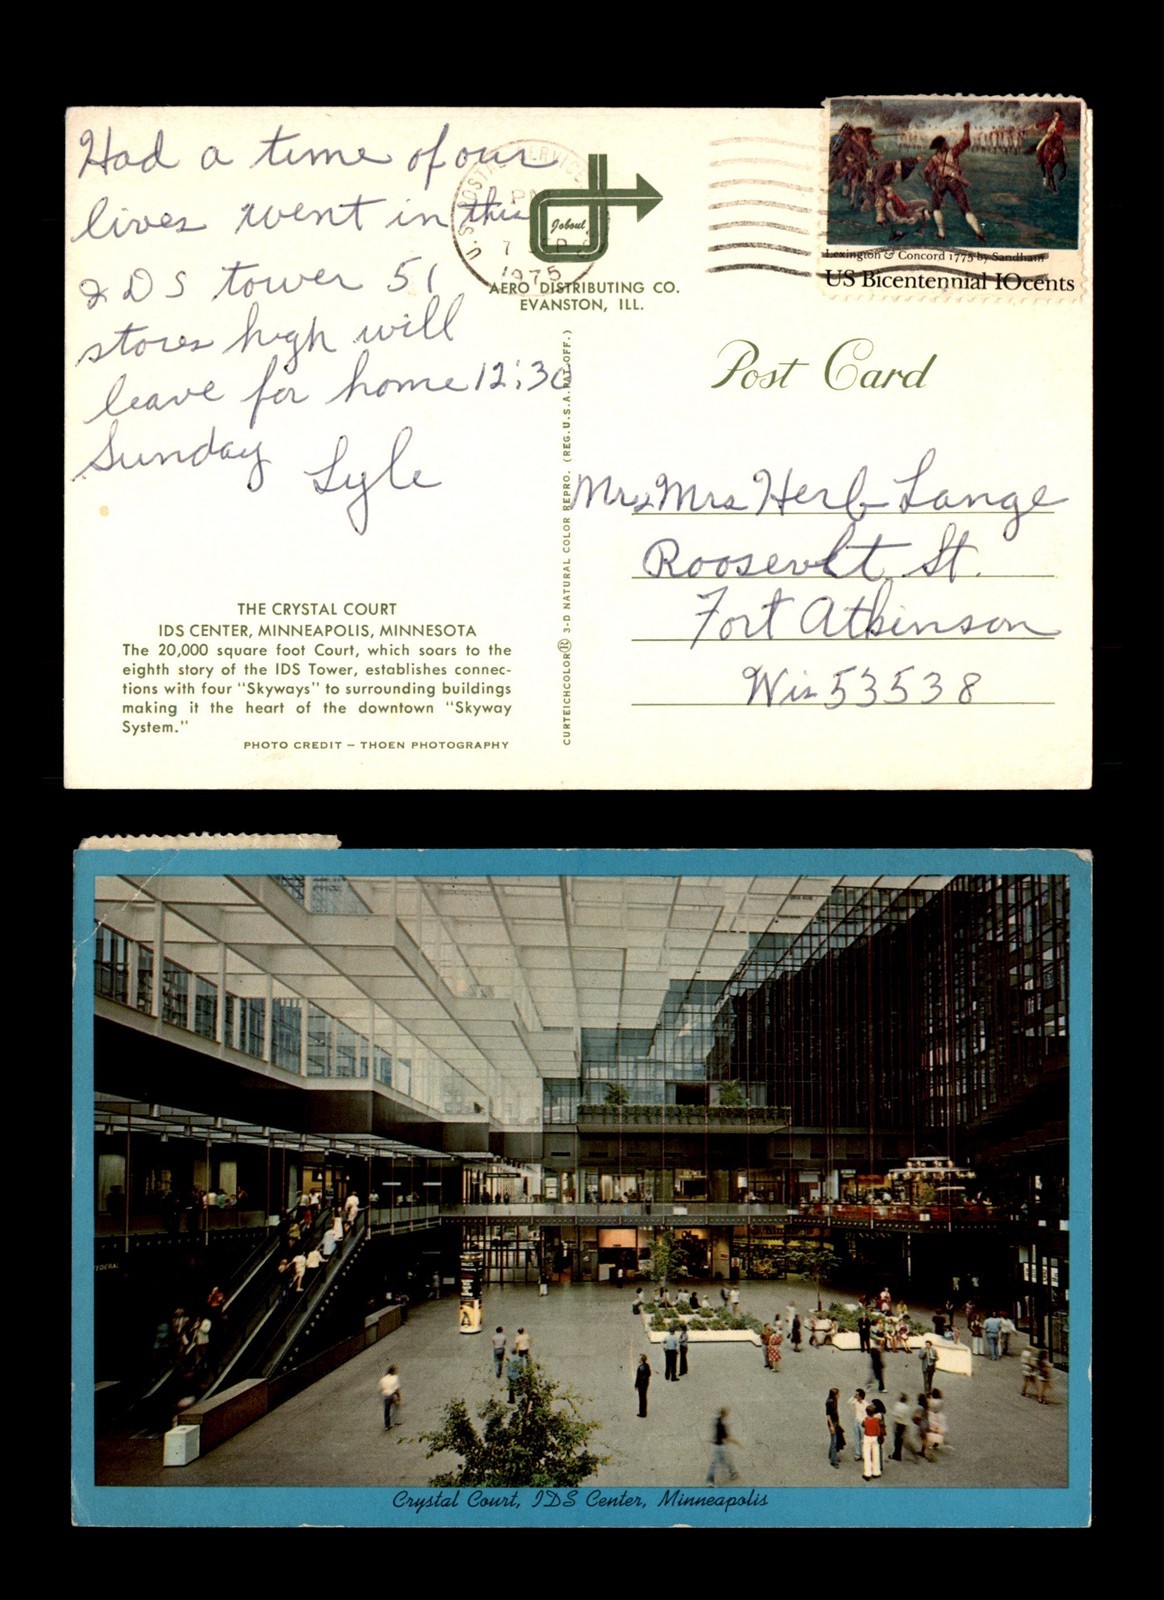 Had a time of our
lives went in this
IDS tower 51
stores high will
leave for home 12:30
Sunday Lyle
U.S. POSTAL SERVICE
PM
7 SEP
1975
Jobout
AERO DISTRIBUTING CO.
EVANSTON, ILL.
Lexington & Concord 1775 by Sandham
US Bicentennial IOcents
Post Card
Mr & Mrs Herb Lange
Roosevelt St.
Fort Atkinson
Wis 53538
THE CRYSTAL COURT
IDS CENTER, MINNEAPOLIS, MINNESOTA
The 20,000 square foot Court, which soars to the
eighth story of the IDS Tower, establishes connec-
tions with four "Skyways" to surrounding buildings
making it the heart of the downtown "Skyway
System."
PHOTO CREDIT – THOEN PHOTOGRAPHY
CURTEICHCOLOR® 3-D NATURAL COLOR REPRO. (REG. U.S.A. PAT. OFF.)
FEDERAL
Crystal Court, IDS Center, Minneapolis